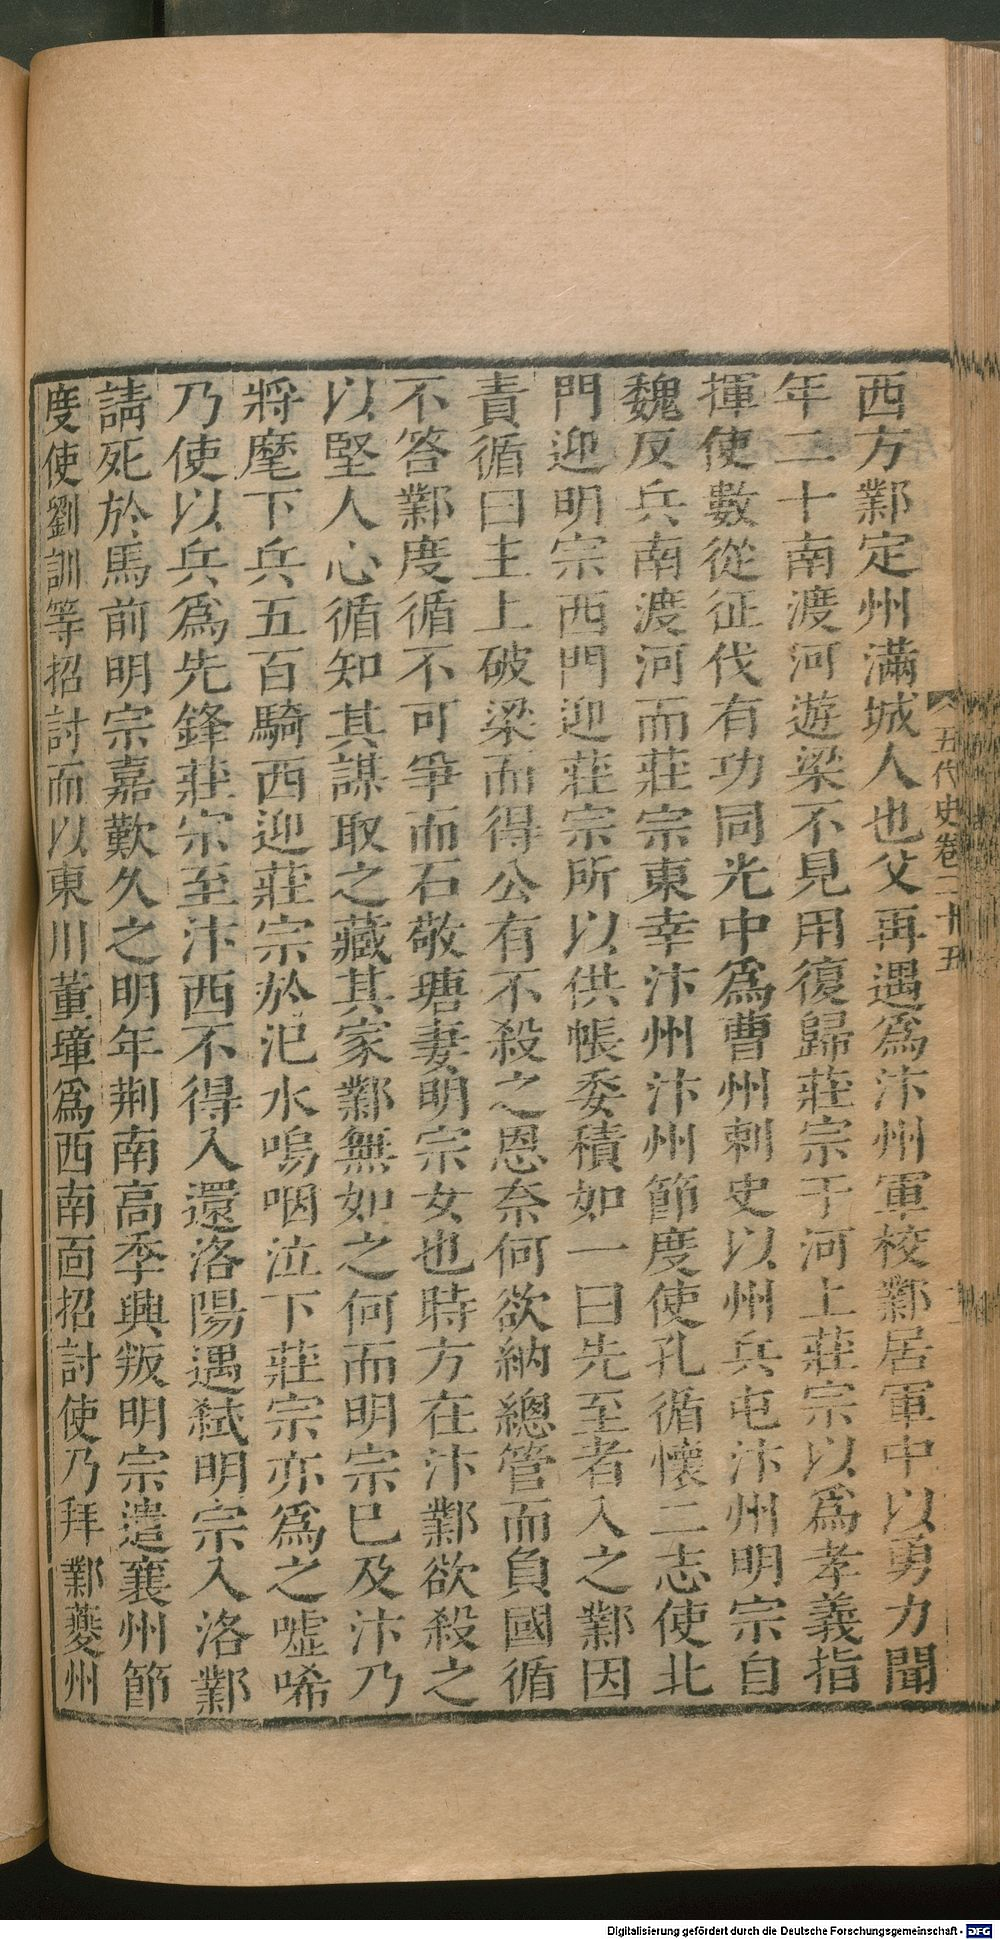 西方鄴定州滿城人也父再遇爲汴州軍校鄴居軍中以勇力聞
年二十南渡河遊梁不見用復歸莊宗于河上莊宗以爲孝義指
揮使數從征伐有功同光中爲曹州刺史以州兵屯汴州明宗自
魏反兵南渡河而莊宗東幸汴州汴州節度使孔循懷二志使北
門迎明宗西門迎莊宗所以供帳委積如一曰先至者入之鄴因
責循曰主上破梁而得公有不殺之恩奈何欲納總管而負國循
不答鄴度循不可爭而石敬瑭妻明宗女也時方在汴鄴欲殺之
以堅人心循知其謀取之藏其家鄴無如之何而明宗已及汴乃
將麾下兵五百騎西迎莊宗於汜水嗚咽泣下莊宗亦爲之噓唏
乃使以兵爲先鋒莊宗至汴西不得入還洛陽遇弑明宗入洛鄴
請死於馬前明宗嘉歎久之明年荆南高季興叛明宗遣襄州節
度使劉訓等招討而以東川董璋爲西南面招討使乃拜鄴夔州
五代史卷二十五
Digitalisierung gefördert durch die Deutsche Forschungsgemeinschaft - DFG